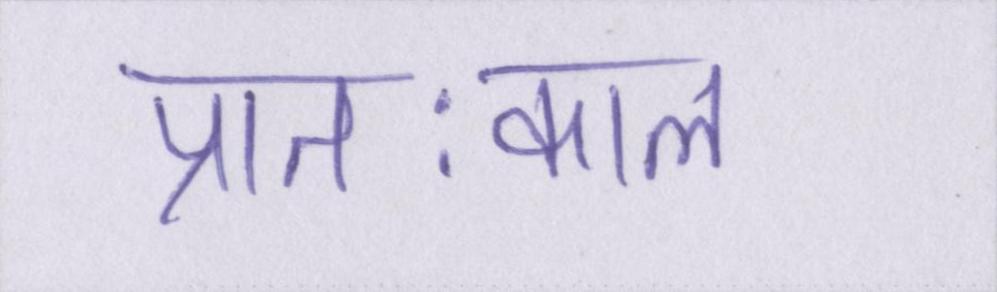 प्रातःकाल